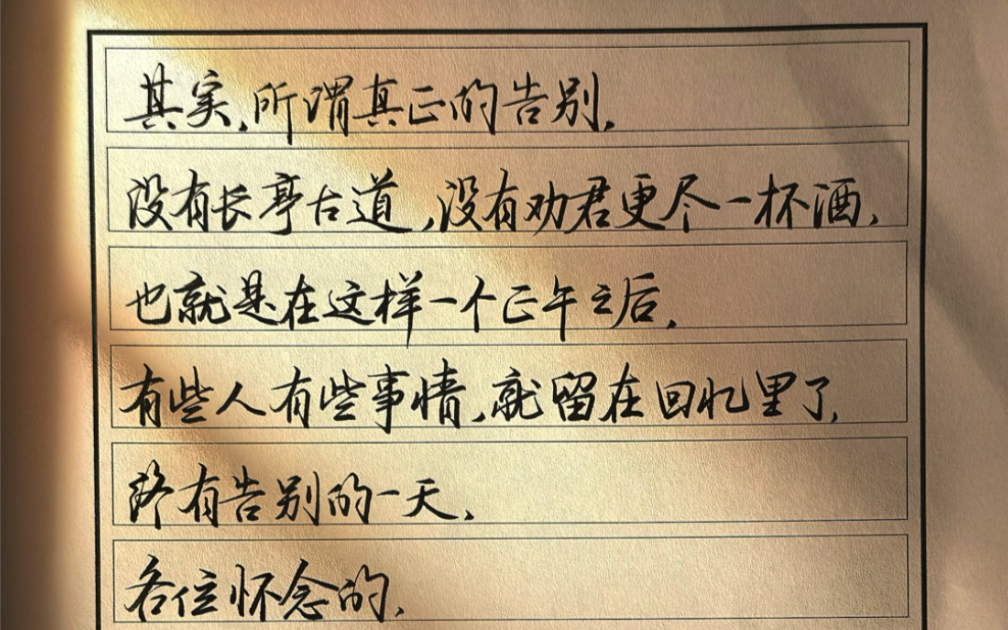 其实,所谓真正的告别,
没有长亭古道,没有劝君更尽一杯酒,
也就是在这样一个正午之后,
有些人有些事情,就留在回忆里了,
终有告别的一天,
各位怀念的,